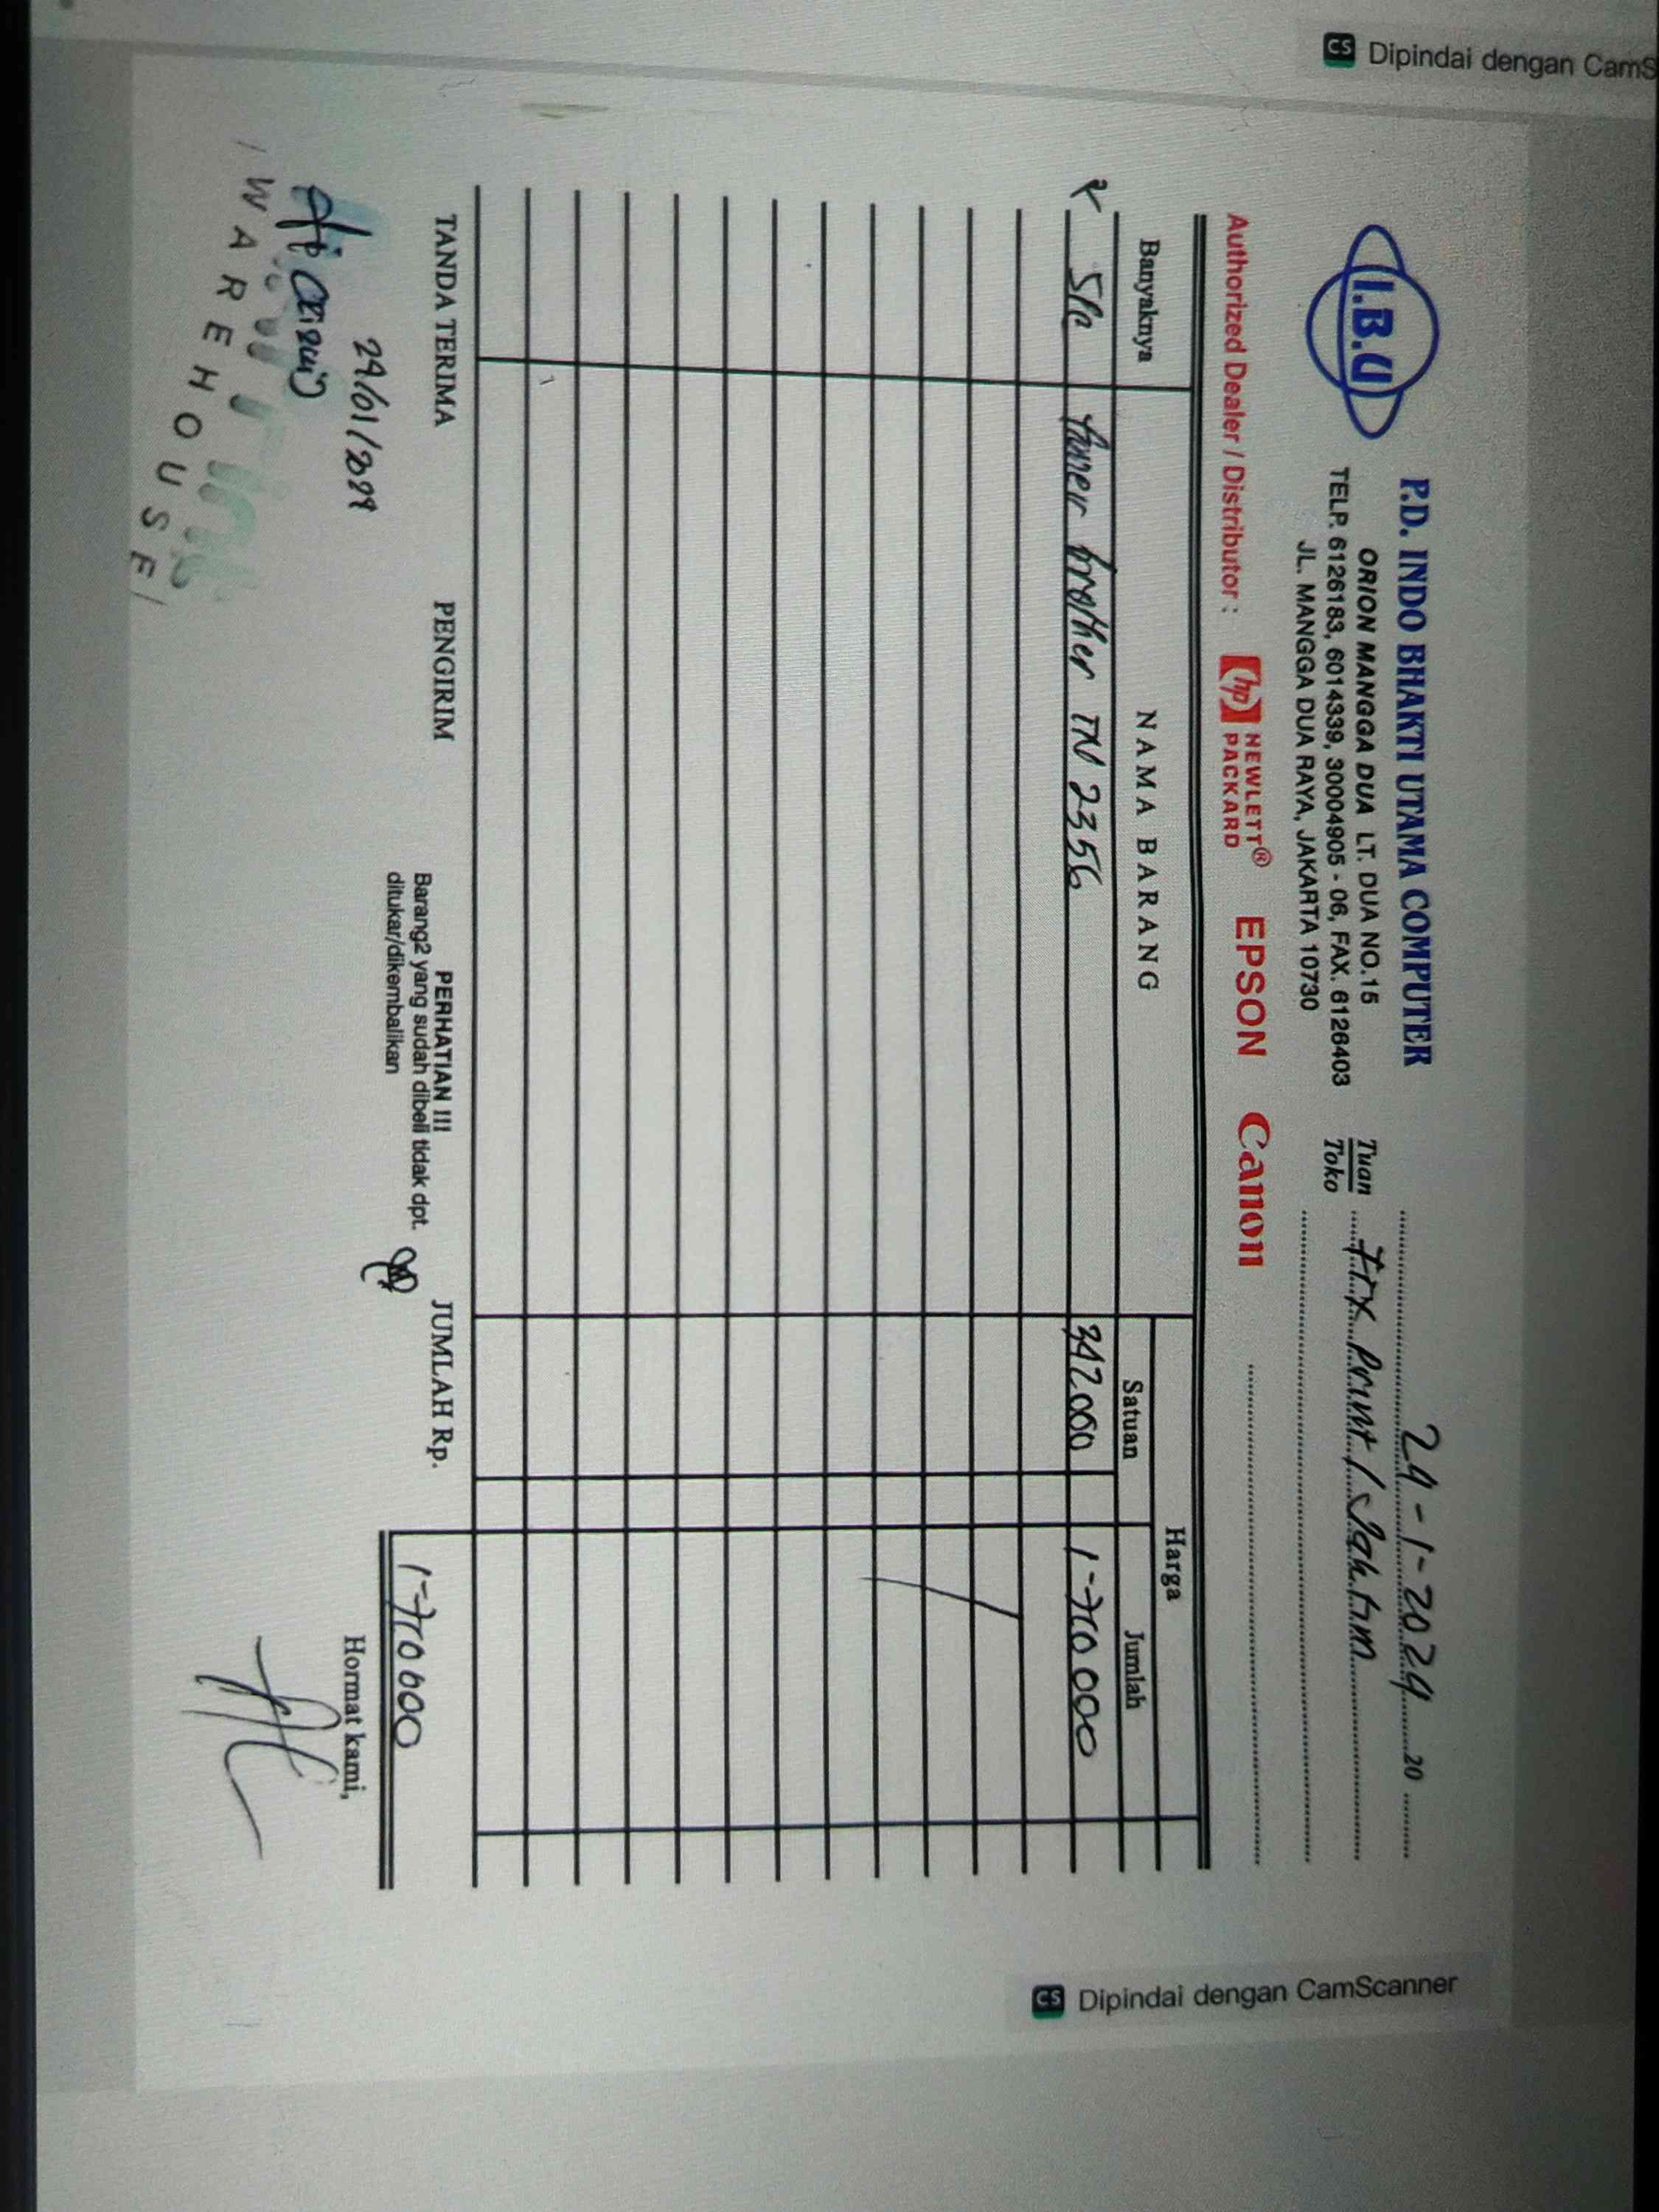 Dipindai dengan CamS
I.B.U
P.D. INDO BHAKTI UTAMA COMPUTER
ORION MANGGA DUA LT. DUA NO.15
TELP. 6126183, 6014339, 30004905 - 06, FAX. 6126403
JL. MANGGA DUA RAYA, JAKARTA 10730
24-1-2024 20
Tuan
Toko
Print / Jaktim
Authorized Dealer / Distributor : hp NEWLETT® PACKARD EPSON Canon
Banyaknya NAMA BARANG Harga
Satuan Jumlah
toner brother TN 2356 342000 1-710 000
TANDA TERIMA PENGIRIM PERHATIAN !!! JUMLAH Rp. 1-710 000
Barang2 yang sudah dibeli tidak dpt.
ditukar/dikembalikan
Hormat kami,
WAREHOUSE
CS Dipindai dengan CamScanner